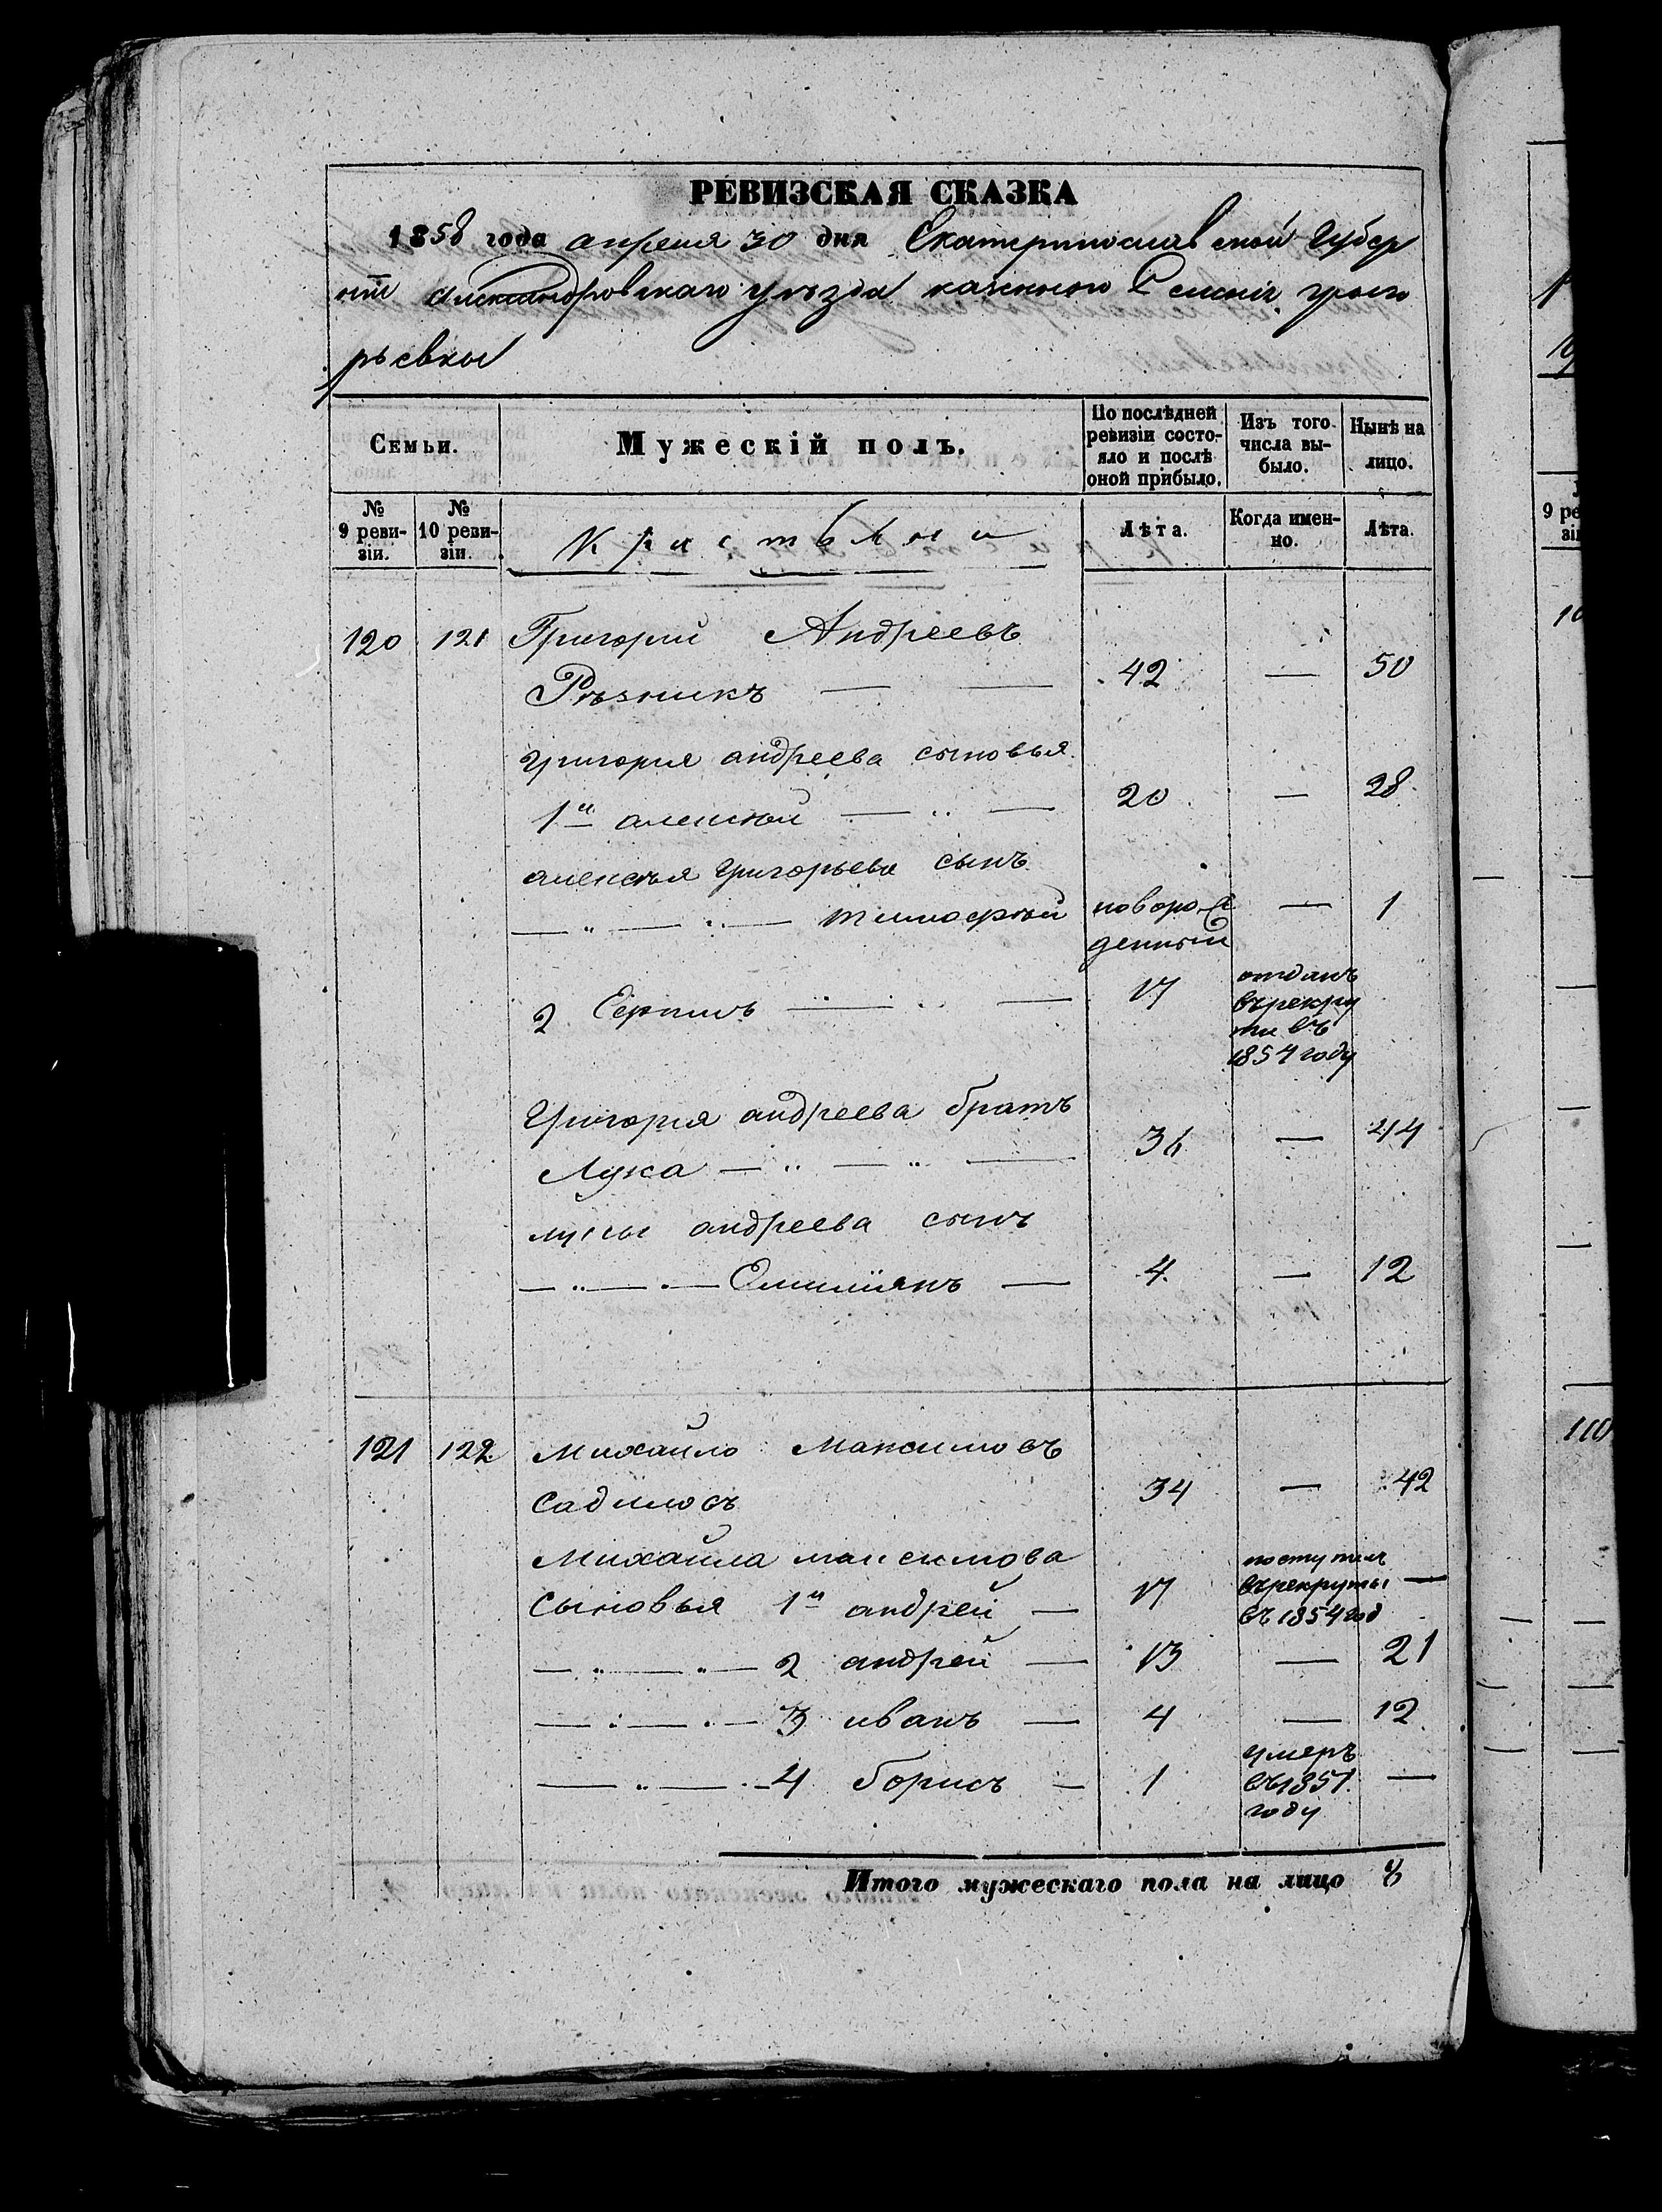 РЕВИЗСКАЯ СКАЗКА
1858 года апреля 30 дня Екатеринославской Губер
нии Александровскаго уезда казеннаго Селенія Григо
рьевки
Семьи.
Мужескій полъ.
По послѣдней ревизіи состояло и послѣ оной прибыло.
Изъ того числа выбыло.
Нынѣ на лицо.
№ 9 ревизіи.
№ 10 ревизіи.
Крестьяни
Лѣта.
Когда именно.
Лѣта.
120 121 Григорий Андреевъ
Резникъ — — 42 — 50
Григорие андреева сыновья
1й алексѣй — — 20 — 28
алексея Григорьева сынъ
— „ — „ — тимофѣй новорож
денный — 1
2 Герпинъ — — 17 отданъ
върекру
ты въ
1854 году
Григория андреева братъ
Лука — „ — „ — 36 — 44
луки андреева сынъ
— „ — „ — Емилиянъ — 4 — 12
121 122 михайло максимовъ
Садиловъ 34 — 42
михайла максимова
сыновья 1й андрей — 17 поступилъ
върекруты
въ 1854 год —
— „ — „ — 2 андрей — 13 — 21
— „ — „ — 3 иванъ — 4 — 12
— „ — „ — 4 борисъ — 1 умеръ
въ 1851
году —
Итого мужескаго пола на лицо 8
9 ре
зі
110